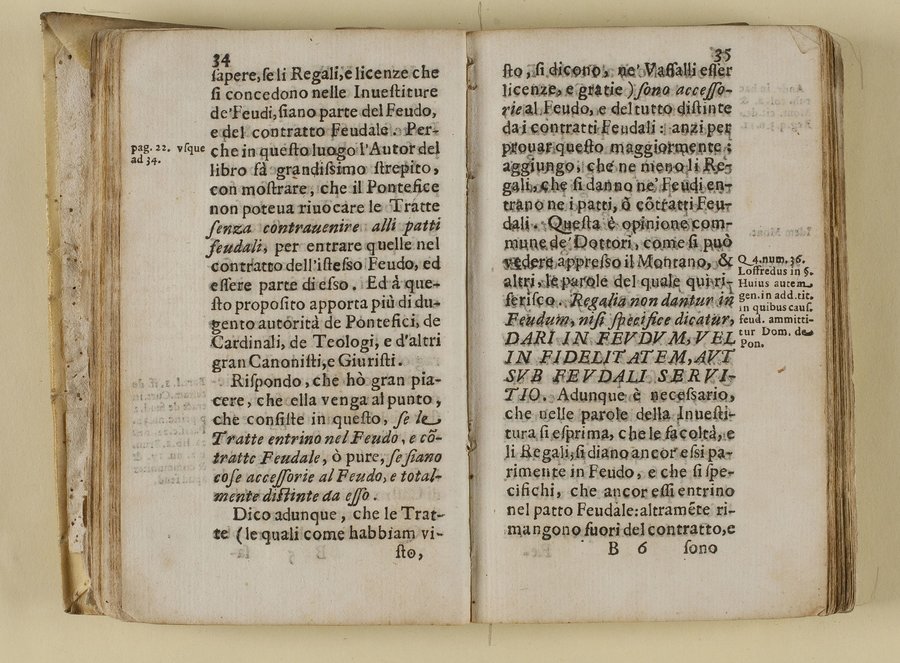 34
ſapere, ſe li Regali, e licenze che
ſi concedono nelle Inueſtiture
de' Feudi, ſiano parte del Feudo,
e del contratto Feudale. Per-
che in queſto luogo l'Autor del
libro fà grandiſsimo ſtrepito,
con moſtrare, che il Pontefice
non poteua riuocare le Tratte
ſenza contrauenire alli patti
feudali, per entrare quelle nel
contratto dell'iſteſso Feudo, ed
eſſere parte di eſso. Ed à que-
ſto propoſito apporta più di du-
gento autorità de Pontefici, de
Cardinali, de Teologi, e d'altri
gran Canoniſti, e Giuriſti.
Riſpondo, che hò gran pia-
cere, che ella venga al punto,
che conſiſte in queſto, ſe le
Tratte entrino nel Feudo, e cõ-
tratto Feudale, ò pure, ſe ſiano
coſe acceſſorie al Feudo, e total-
mente diſtinte da eſſo.
Dico adunque, che le Trat-
te (le quali come habbiam vi-
ſto,
pag. 22. vſque
ad 34.
35
ſto, ſi dicono, ne' Vaſſalli eſſer
licenze, e gratie) ſono acceſſo-
rie al Feudo, e del tutto diſtinte
da i contratti Feudali: anzi per
prouar queſto maggiormente;
aggiungo, che ne meno li Re-
gali, che ſi danno ne' Feudi en-
trano ne i patti, ò cõtratti Feu-
dali. Queſta è opinione com-
mune de' Dottori, come ſi può
vedere appreſso il Montano, &
altri, le parole del quale qui ri-
feriſco. Regalia non dantur in
Feudum, niſi ſpecifice dicatur,
DARI IN FEVDVM, VEL
IN FIDELITATEM, AVT
SVB FEVDALI SERVI-
TIO. Adunque è neceſsario,
che nelle parole della Inueſti-
tura ſi eſprima, che le facoltà, e
li Regali, ſi diano ancor eſsi pa-
rimente in Feudo, e che ſi ſpe-
cifichi, che ancor eſſi entrino
nel patto Feudale: altramẽte ri-
mangono fuori del contratto, e
B 6 ſono
Q. 4. num. 36.
Loffredus in §.
Huius autem
gen. in add. tit.
in quibus cauſ.
feud. ammitti-
tur Dom. de
Pon.